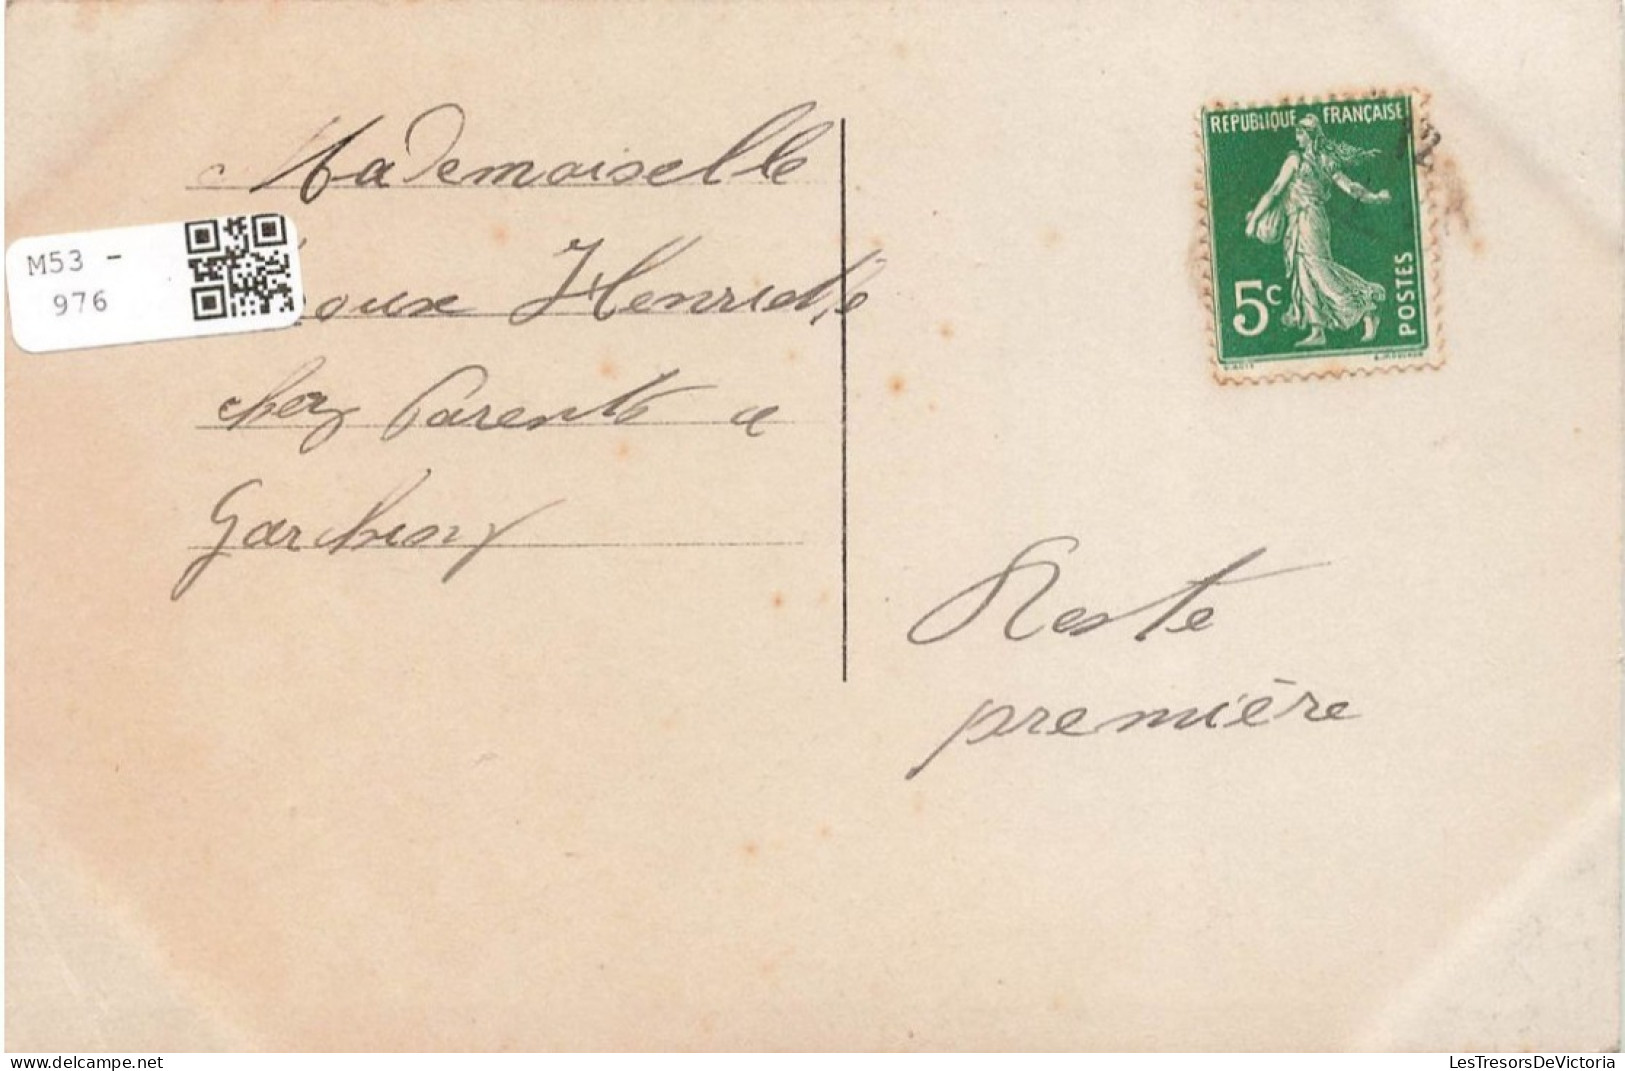 Mademoiselle
oux Henriette
chez Parents a
Garchizy
M53 -
976
REPUBLIQUE FRANÇAISE
5c
POSTES
Reste
première
www.delcampe.net
LesTresorsDeVictoria